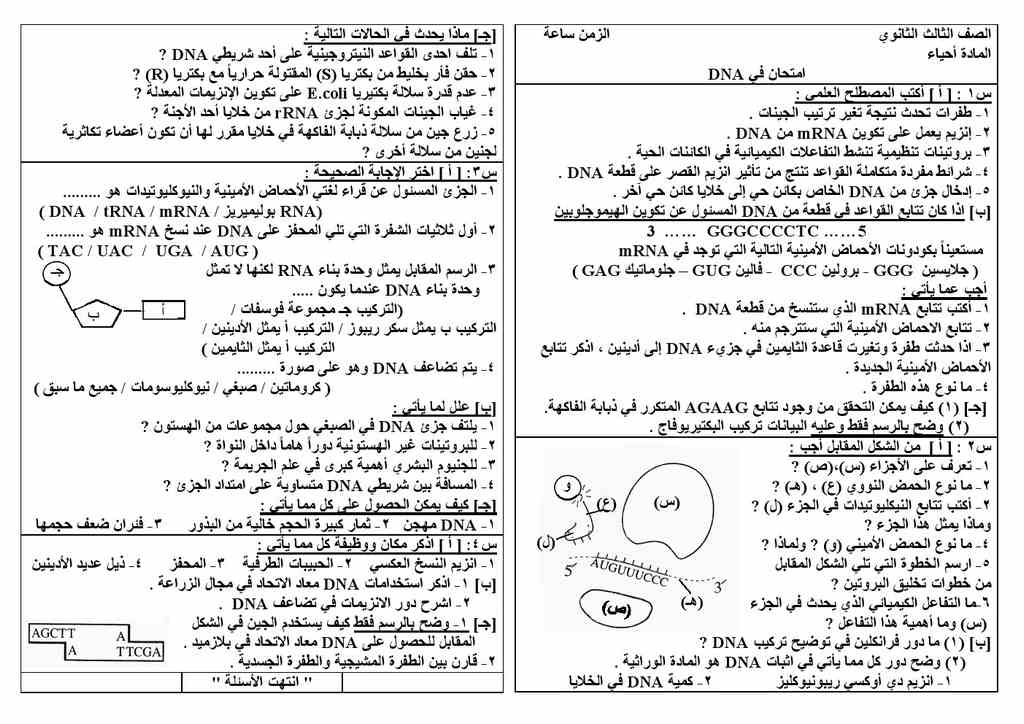 الصف الثالث الثانوي الزمن ساعة
المادة أحياء
امتحان في DNA
س١ : [ أ ] أكتب المصطلح العلمى :
١- طفرات تحدث نتيجة تغير ترتيب الجينات .
٢- إنزيم يعمل على تكوين mRNA من DNA .
٣- بروتينات تنظيمية تنشط التفاعلات الكيميائية في الكائنات الحية .
٤- شرائط مفردة متكاملة القواعد تنتج من تأثير انزيم القصر على قطعة DNA .
٥- إدخال جزئ من DNA الخاص بكائن حي إلى خلايا كائن حي آخر .
[ب] اذا كان تتابع القواعد في قطعة من DNA المسئول عن تكوين الهيموجلوبين
3 …… GGGCCCCTC ……5
مستعيناً بكودونات الأحماض الأمينية التالية التي توجد في mRNA
( جلايسين GGG - برولين CCC - فالين GUG – جلوماتيك GAG )
أجب عما يأتي :
١- أكتب تتابع mRNA الذي ستنسخ من قطعة DNA .
٢- تتابع الاحماض الأمينية التي ستترجم منه .
٣- اذا حدثت طفرة وتغيرت قاعدة الثايمين في جزيء DNA إلى أدينين ، اذكر تتابع
الأحماض الأمينية الجديدة .
٤- ما نوع هذه الطفرة .
[جـ] (١) كيف يمكن التحقق من وجود تتابع AGAAG المتكرر في ذبابة الفاكهة.
(٢) وضح بالرسم فقط وعليه البيانات تركيب البكتيريوفاج .
س٢ : [ أ ] من الشكل المقابل أجب :
١- تعرف على الأجزاء (س)،(ص) ?
٢- ما نوع الحمض النووي (ع) ، (هـ) ?
٣- أكتب تتابع النيكليوتيدات في الجزء (ل) ?
وماذا يمثل هذا الجزء ?
٤- ما نوع الحمض الأميني (و) ? ولماذا ?
٥- ارسم الخطوة التي تلي الشكل المقابل
من خطوات تخليق البروتين ?
٦-ما التفاعل الكيميائي الذي يحدث في الجزء
(س) وما أهمية هذا التفاعل ?
و
(س)
(ع)
(ل)
5 AUGUUUCCC 3
(هـ)
(ص)
[ب] (١) ما دور فرانكلين في توضيح تركيب DNA ?
(٢) وضح دور كل مما يأتي في اثبات DNA هو المادة الوراثية .
١- انزيم دي أوكسي ريبونيوكليز ٢- كمية DNA في الخلايا
[جـ] ماذا يحدث في الحالات التالية :
١- تلف احدى القواعد النيتروجينية على أحد شريطي DNA ?
٢- حقن فأر بخليط من بكتريا (S) المقتولة حرارياً مع بكتريا (R) ?
٣- عدم قدرة سلالة بكتيريا E.coli على تكوين الإنزيمات المعدلة ?
٤- غياب الجينات المكونة لجزئ rRNA من خلايا أحد الأجنة ?
٥- زرع جين من سلالة ذبابة الفاكهة في خلايا مقرر لها أن تكون أعضاء تكاثرية
لجنين من سلالة أخرى ?
س٣: [ أ ] اختر الإجابة الصحيحة :
١- الجزئ المسئول عن قراء لغتي الأحماض الأمينية والنيوكليوتيدات هو .........
( DNA / tRNA / mRNA / بوليميريز RNA)
٢- أول ثلاثيات الشفرة التي تلي المحفز على DNA عند نسخ mRNA هو .........
( TAC / UAC / UGA / AUG )
٣- الرسم المقابل يمثل وحدة بناء RNA لكنها لا تمثل
وحدة بناء DNA عندما يكون .....
(التركيب جـ مجموعة فوسفات /
التركيب ب يمثل سكر ريبوز / التركيب أ يمثل الأدينين /
التركيب أ يمثل الثايمين )
جـ
ب
أ
٤- يتم تضاعف DNA وهو على صورة .........
( كروماتين / صبغي / نيوكليوسومات / جميع ما سبق )
[ب] علل لما يأتي :
١- يلتف جزئ DNA في الصبغي حول مجموعات من الهستون ?
٢- للبروتينات غير الهستونية دوراً هاماً داخل النواة ?
٣- للجنيوم البشري أهمية كبرى في علم الجريمة ?
٤- المسافة بين شريطي DNA متساوية على امتداد الجزئ ?
[جـ] كيف يمكن الحصول على كل مما يأتي :
١- DNA مهجن ٢- ثمار كبيرة الحجم خالية من البذور ٣- فئران ضعف حجمها
س٤: [ أ ] اذكر مكان ووظيفة كل مما يأتي :
١- انزيم النسخ العكسي ٢- الحبيبات الطرفية ٣- المحفز ٤- ذيل عديد الأدينين
[ب] ١- اذكر استخدامات DNA معاد الاتحاد في مجال الزراعة .
٢- اشرح دور الانزيمات في تضاعف DNA .
[جـ] ١- وضح بالرسم فقط كيف يستخدم الجين في الشكل
المقابل للحصول على DNA معاد الاتحاد في بلازميد .
٢- قارن بين الطفرة المشيجية والطفرة الجسدية .
AGCTT A
A TTCGA
" انتهت الأسئلة "